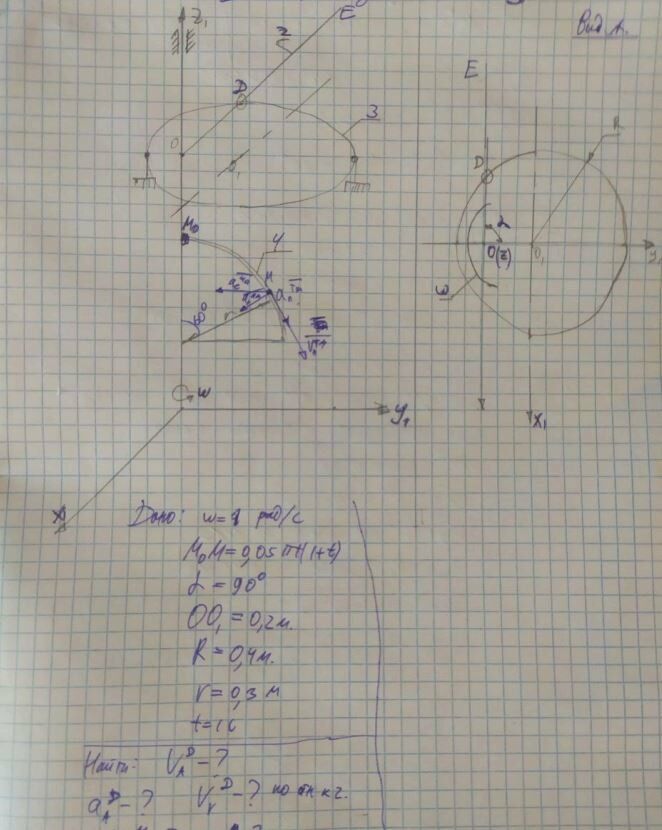 Вид А.
Z₁
E
2
D
3
O
O₁
M₀
4
M
60°
r
ω
y₁
X₁
E
R
D
α
O(z)
O₁
y₁
ω
X₁
Дано: ω=1 рад/с
M₀M=0,05πt(1+t)
α=90°
OO₁=0,2м.
R=0,4м.
r=0,3 м
t=1c
Найти: V_A^D-?
a_A^D-? V_r^D-? по отн к 2.